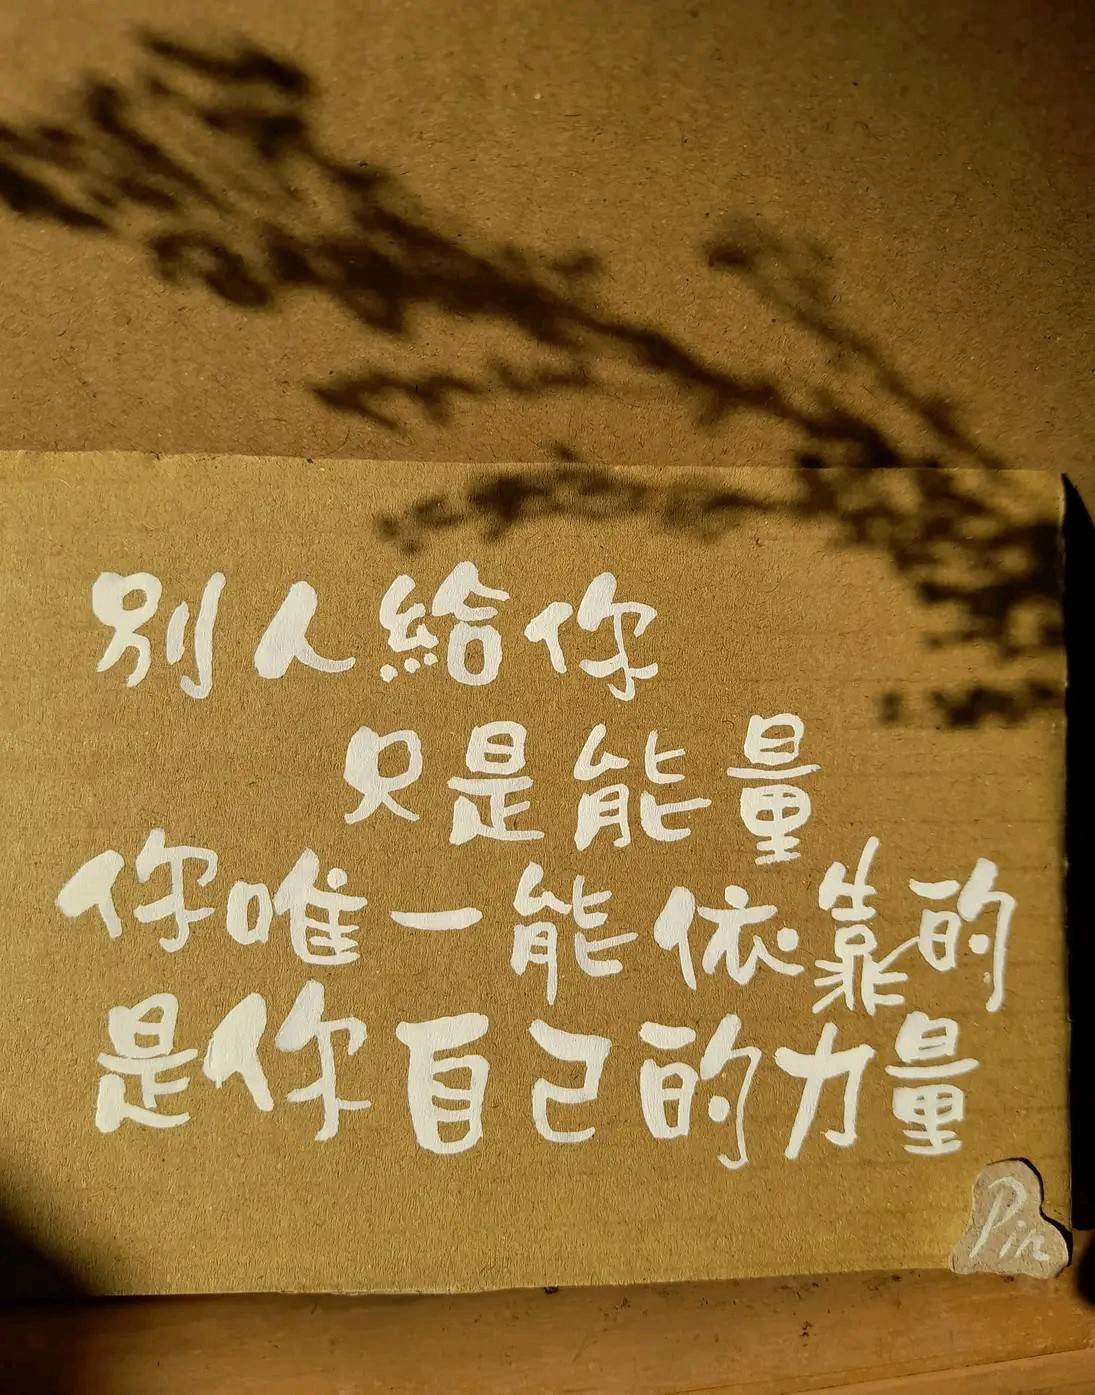 別人給你
只是能量
你唯一能依靠的
是你自己的力量
Pin